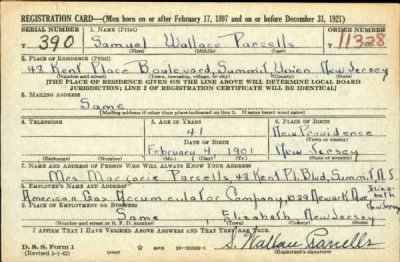 REGISTRATION CARD—(Men born on or after February 17, 1897 and on or before December 31, 1921)
SERIAL NUMBER 1. NAME (Print) ORDER NUMBER
T 390 Samuel Wallace Parcells T 11328
(First) (Middle) (Last)
2. PLACE OF RESIDENCE (Print)
48 Kent Place Boulevard, Summit Union New Jersey
(Number and street) (Town, township, village, or city) (County) (State)
[THE PLACE OF RESIDENCE GIVEN ON THE LINE ABOVE WILL DETERMINE LOCAL BOARD
JURISDICTION; LINE 2 OF REGISTRATION CERTIFICATE WILL BE IDENTICAL]
3. MAILING ADDRESS
Same
[Mailing address if other than place indicated on line 2. If same insert word same]
4. TELEPHONE 5. AGE IN YEARS 6. PLACE OF BIRTH
41 New Providence
DATE OF BIRTH (Town or county)
February 4, 1901 New Jersey
(Exchange) (Number) (Mo.) (Day) (Yr.) (State or country)
7. NAME AND ADDRESS OF PERSON WHO WILL ALWAYS KNOW YOUR ADDRESS
Mrs Marjorie Parcells, 48 Kent Pl. Blvd, Summit, N.J.
8. EMPLOYER'S NAME AND ADDRESS
American Gas Accumulator Company, 1029 Newark Ave Elizabeth New Jersey
9. PLACE OF EMPLOYMENT OR BUSINESS
Same Elizabeth, New Jersey
(Number and street or R. F. D. number) (Town) (County) (State)
I AFFIRM THAT I HAVE VERIFIED ABOVE ANSWERS AND THAT THEY ARE TRUE.
S. Wallace Parcells
D. S. S. Form 1
(Revised 1-1-42) (over)
(Registrant's signature)